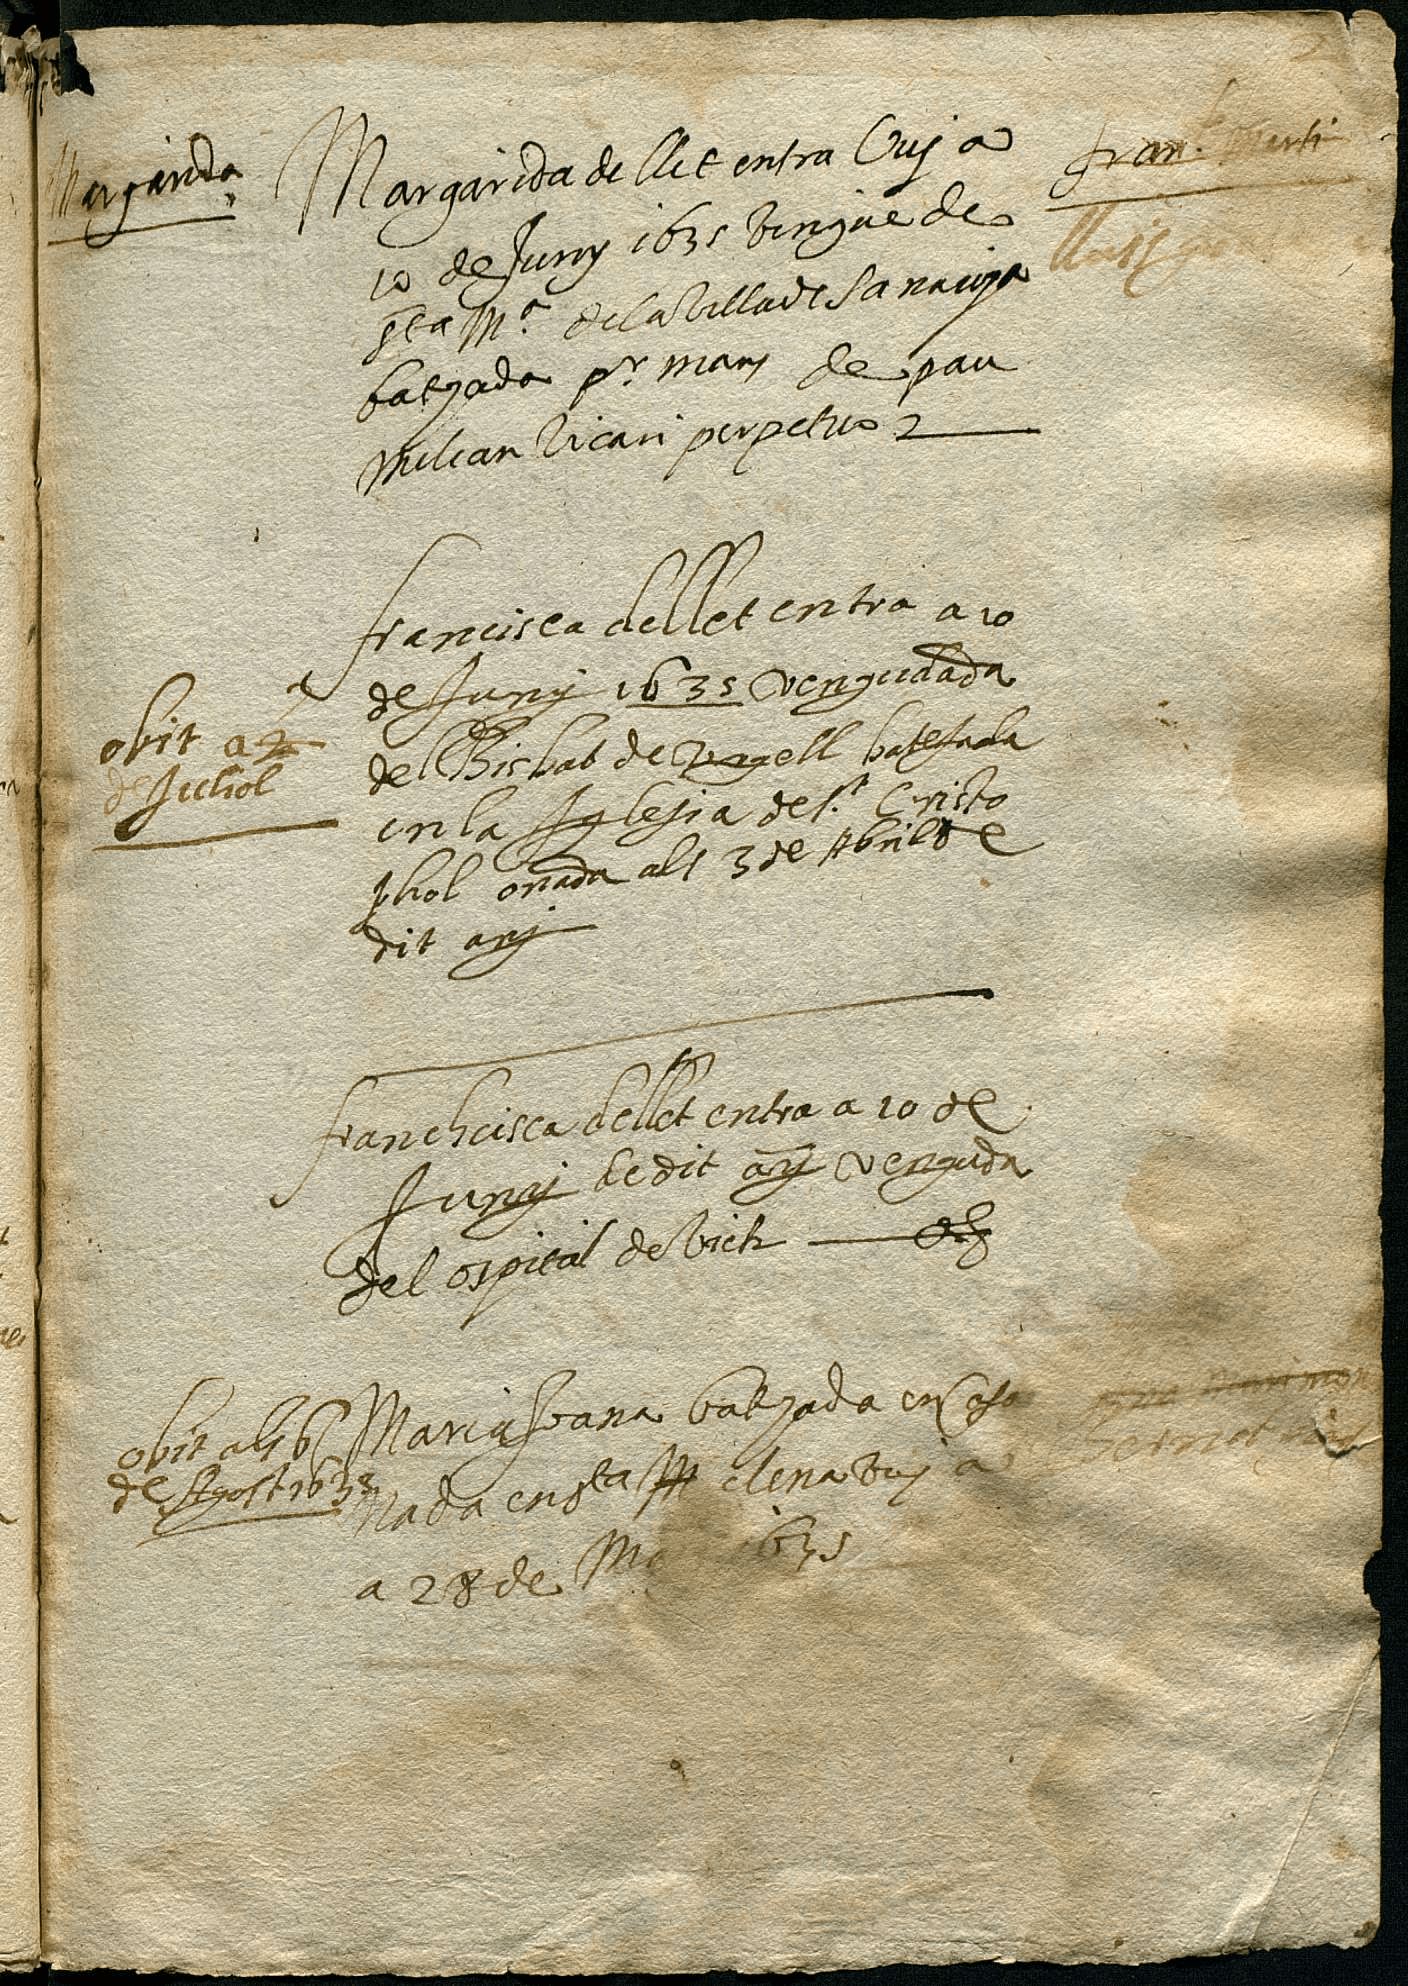 Margarida
Margarida de llet entra Vuy a
10 de Juny 1635 Vingue de
Sta Mª. de la Villa de Sanauja
batejada pr. mans de pau
Vicari perpetuo
fran. Marti
francisca de llet entra a 10
de Juny 1635 venguda
del Bisbat de Vrgell batejada
en la Iglesia de St. Cristo
phol onada als 3 de Abril de
dit any
obit a 2
de Juliol
franchisca de llet entra a 10 de
Juny de dit any venguda
del ospital de Vich
obit als 6
de Agost 1635
Maria Joana batejada en Casa
nada en Sta M elena Vuy a
a 28 de 1635